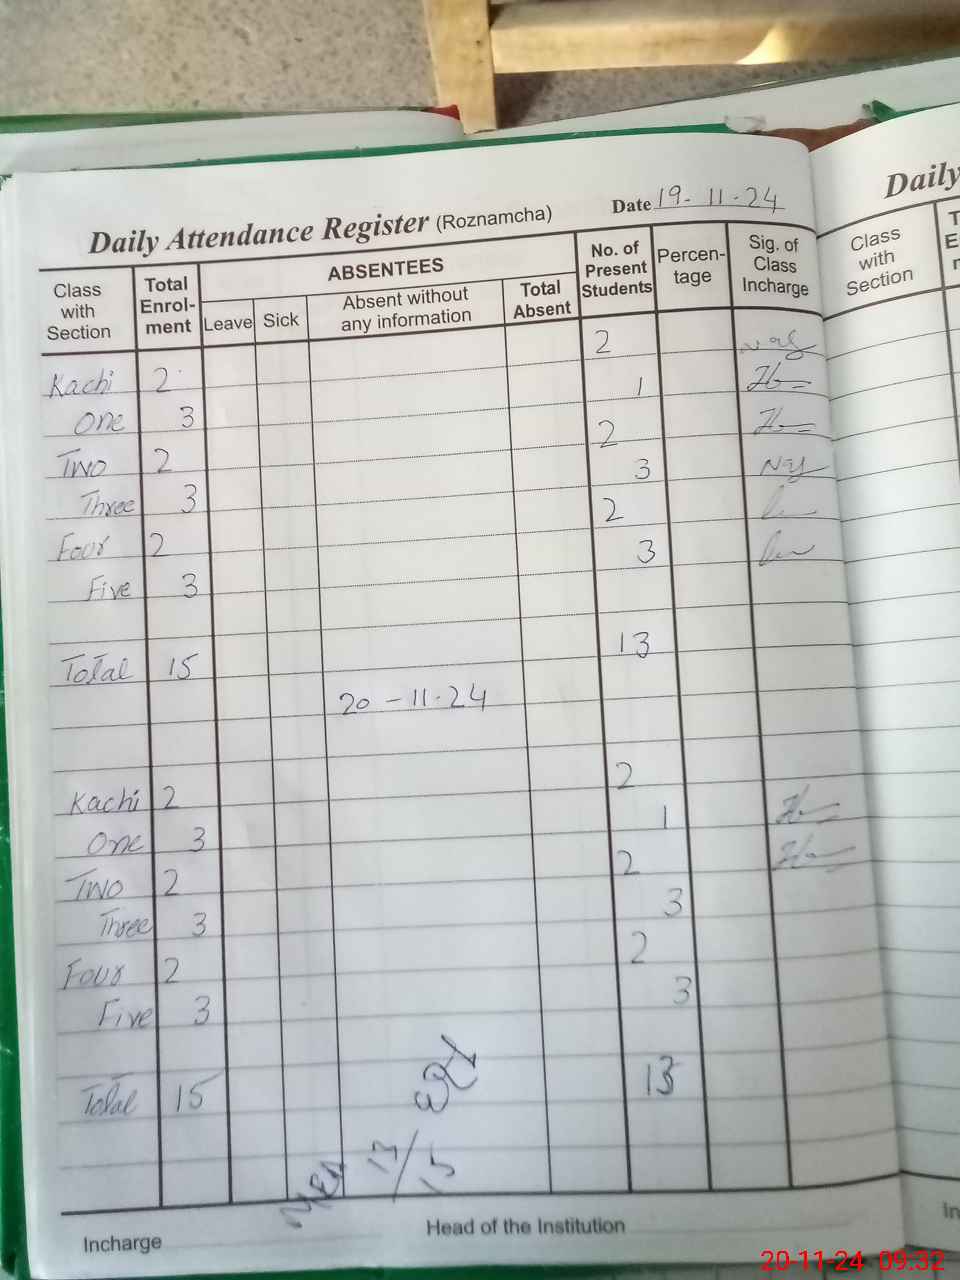 Daily Attendance Register (Roznamcha) Date 19-11-24
Class with Section
Total Enrolment
ABSENTEES
Leave
Sick
Absent without any information
Total Absent
No. of Present Students
Percentage
Sig. of Class Incharge
Kachi 2 2 Naz
One 3 1
Two 2 2
Three 3 3 Naz
Four 2 2
Five 3 3
Total 15 13
20-11-24
Kachi 2 2
One 3 1
Two 2 2
Three 3 3
Four 2 2
Five 3 3
Total 15 13
MEA 13/15
Incharge
Head of the Institution
Daily
Class with Section
20-11-24 09:32